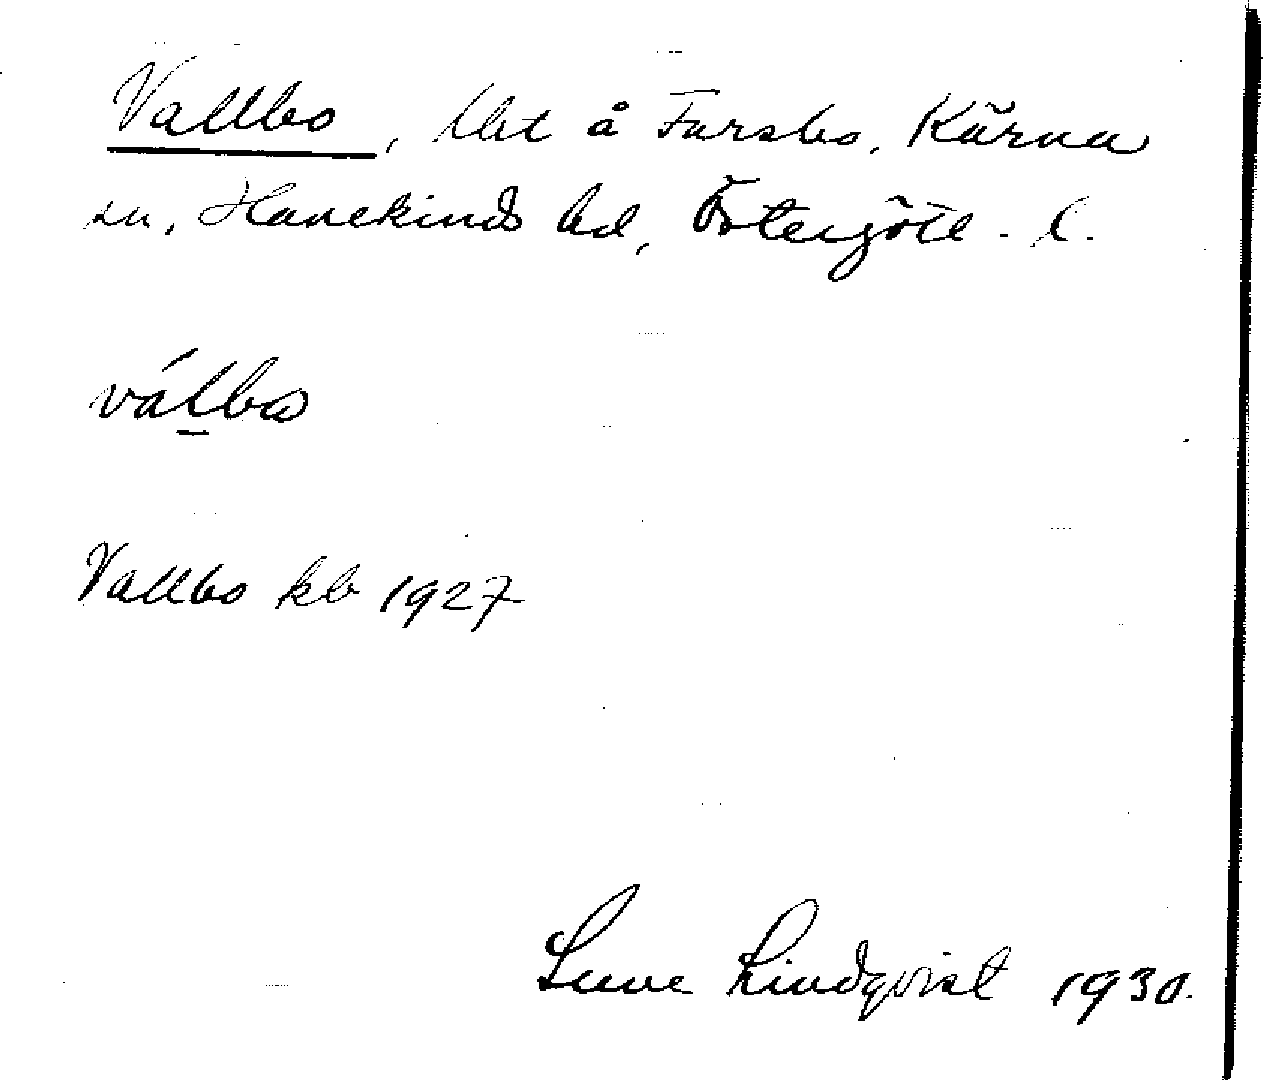 Vallbo, lht å Farsbo, Kärna
sn, Hanekinds hd, Östergötl. l.
válbo
Vallbo kb 1927
Sune Lindqvist 1930.